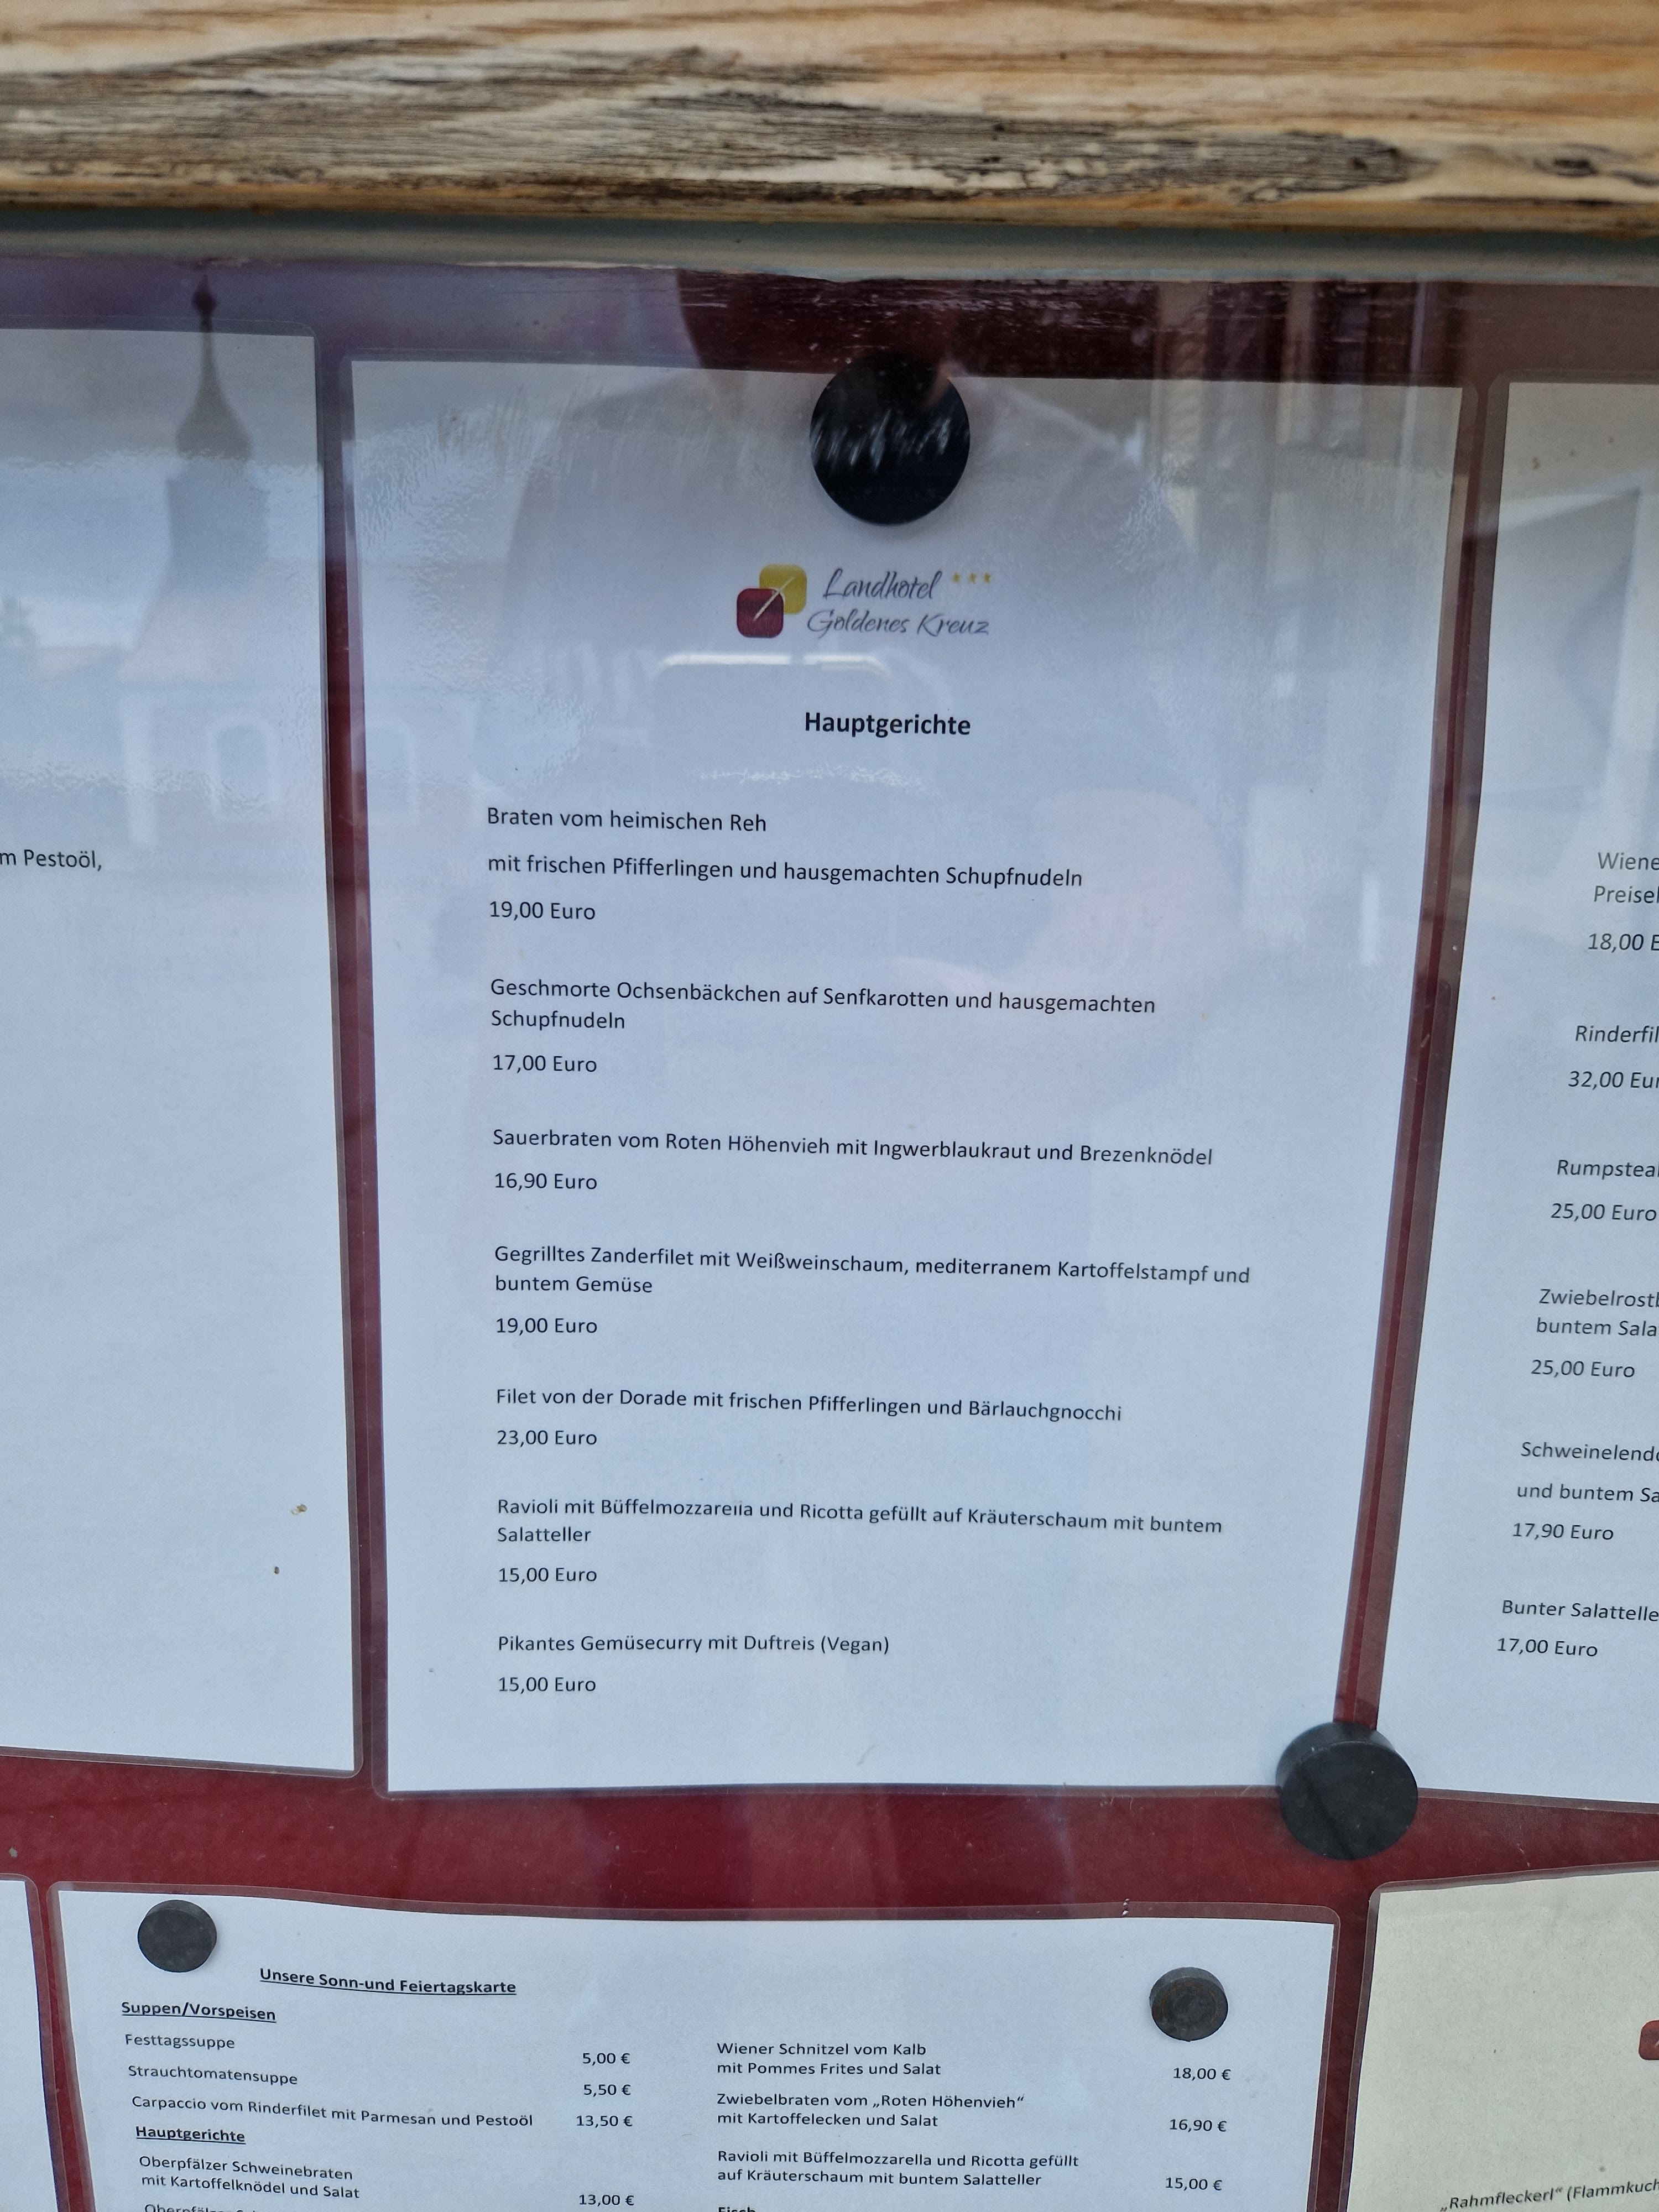 m Pestoöl,
Landhotel
Goldenes Kreuz
Hauptgerichte
Braten vom heimischen Reh
mit frischen Pfifferlingen und hausgemachten Schupfnudeln
19,00 Euro
Geschmorte Ochsenbäckchen auf Senfkarotten und hausgemachten
Schupfnudeln
17,00 Euro
Sauerbraten vom Roten Höhenvieh mit Ingwerblaukraut und Brezenknödel
16,90 Euro
Gegrilltes Zanderfilet mit Weißweinschaum, mediterranem Kartoffelstampf und
buntem Gemüse
19,00 Euro
Filet von der Dorade mit frischen Pfifferlingen und Bärlauchgnocchi
23,00 Euro
Ravioli mit Büffelmozzarella und Ricotta gefüllt auf Kräuterschaum mit buntem
Salatteller
15,00 Euro
Pikantes Gemüsecurry mit Duftreis (Vegan)
15,00 Euro
Wiene
Preisel
18,00 E
Rinderfil
32,00 Eur
Rumpstea
25,00 Euro
Zwiebelrost
buntem Sala
25,00 Euro
Schweinelend
und buntem Sa
17,90 Euro
Bunter Salattelle
17,00 Euro
Unsere Sonn-und Feiertagskarte
Suppen/Vorspeisen
Festtagssuppe 5,00 €
Strauchtomatensuppe 5,50 €
Carpaccio vom Rinderfilet mit Parmesan und Pestoöl 13,50 €
Hauptgerichte
Oberpfälzer Schweinebraten
mit Kartoffelknödel und Salat 13,00 €
Wiener Schnitzel vom Kalb
mit Pommes Frites und Salat 18,00 €
Zwiebelbraten vom „Roten Höhenvieh“
mit Kartoffelecken und Salat 16,90 €
Ravioli mit Büffelmozzarella und Ricotta gefüllt
auf Kräuterschaum mit buntem Salatteller 15,00 €
„Rahmfleckerl“ (Flammkuch